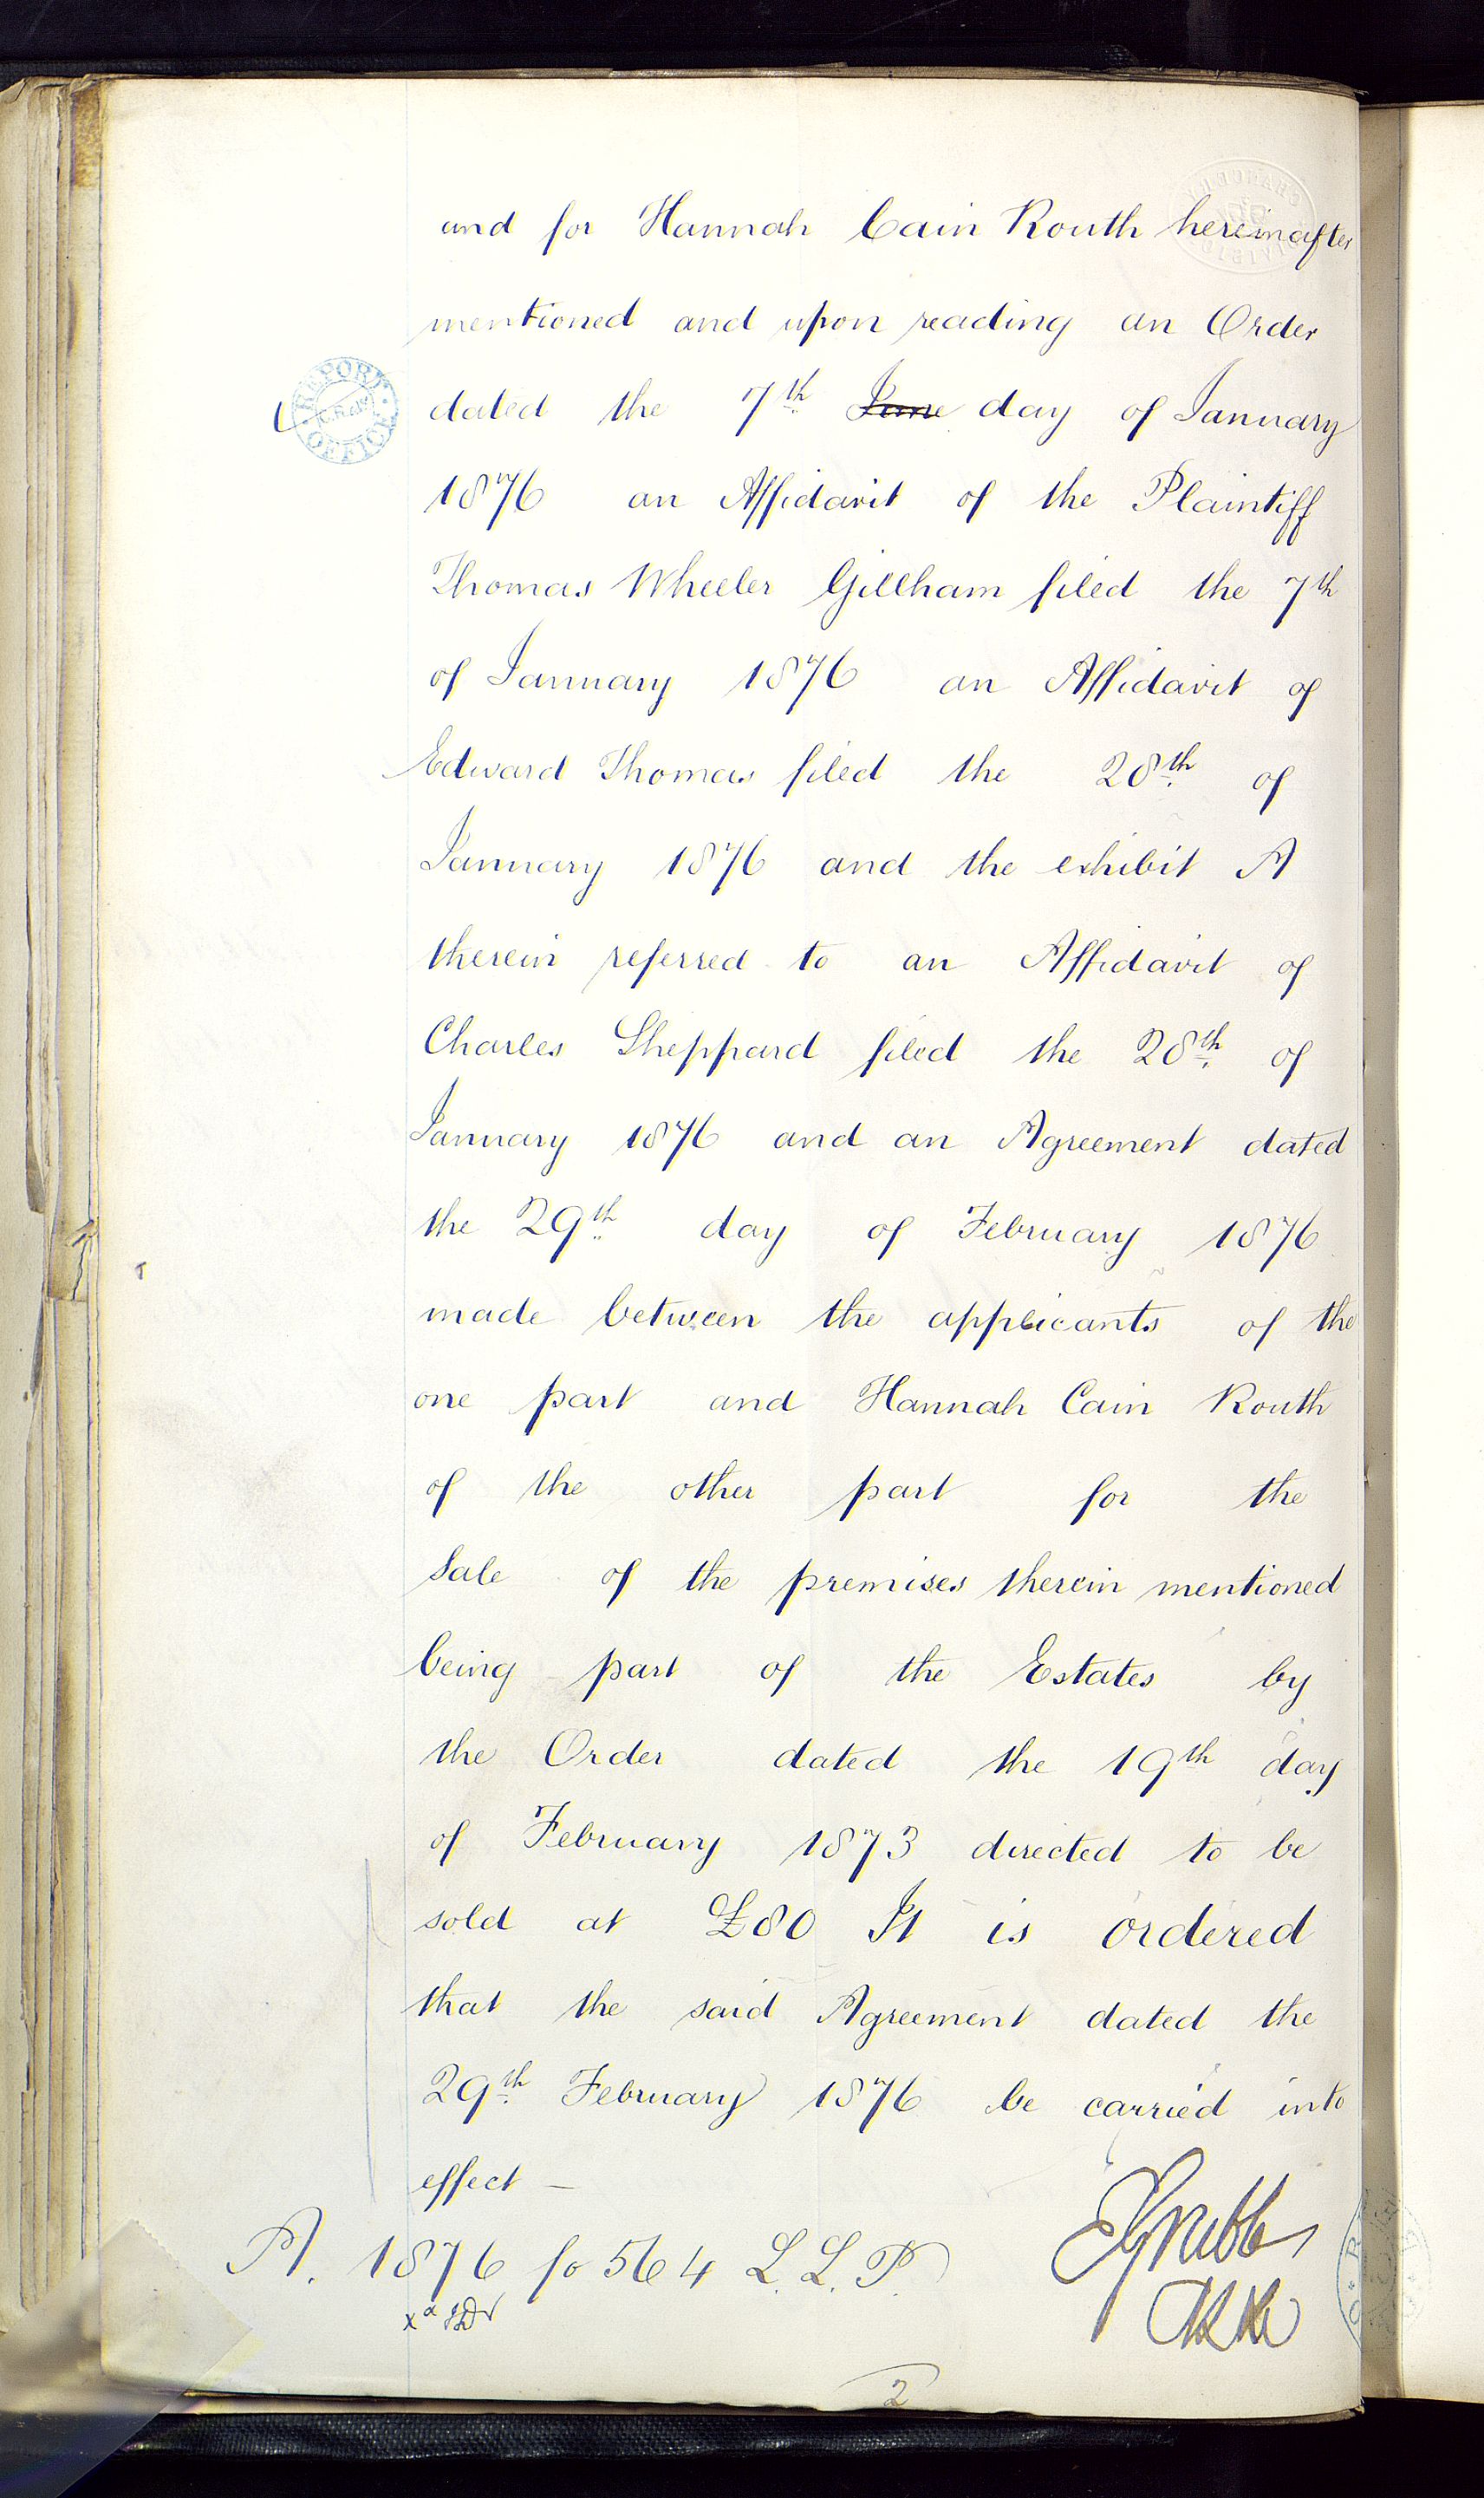 and for Hannah Cain Routh hereinafter
mentioned and upon reading an Order
REPORT OFFICE
dated the 7th June day of January
1876 an Affidavit of the Plaintiff
Thomas Wheeler Gillham filed the 7th
of January 1876 an Affidavit of
Edward Thomas filed the 28th of
January 1876 and the exhibit A
therein referred to an Affidavit of
Charles Sheppard filed the 28th of
January 1876 and an Agreement dated
the 29th day of February 1876
made between the applicants of the
one part and Hannah Cain Routh
of the other part for the
Sale of the premises therein mentioned
being part of the Estates by
the Order dated the 19th day
of February 1873 directed to be
sold at £80 It is ordered
that the said Agreement dated the
29th February 1876 be carried into
effect —
A. 1876 fo 564 L.L.P.
2